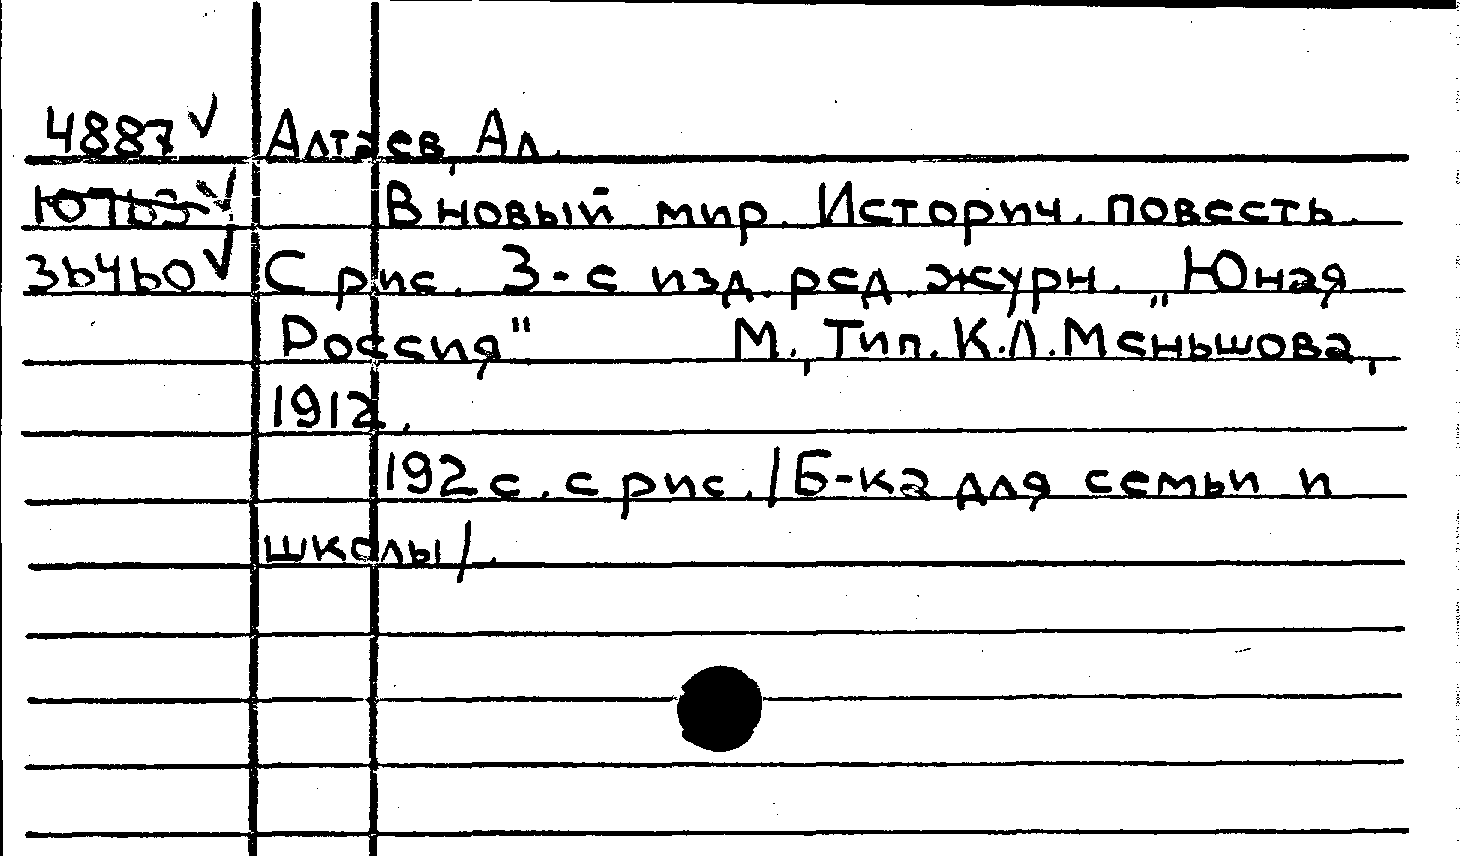 4887 √ Алтаев, Ал.
10763 √ В новый мир. Историч. повесть.
36460 √ С рис. 3-е изд. ред. журн. „Юная
Россия" М., Тип. К.Л. Меньшова,
1912.
192 с. с рис. /Б-ка для семьи и
школы/.